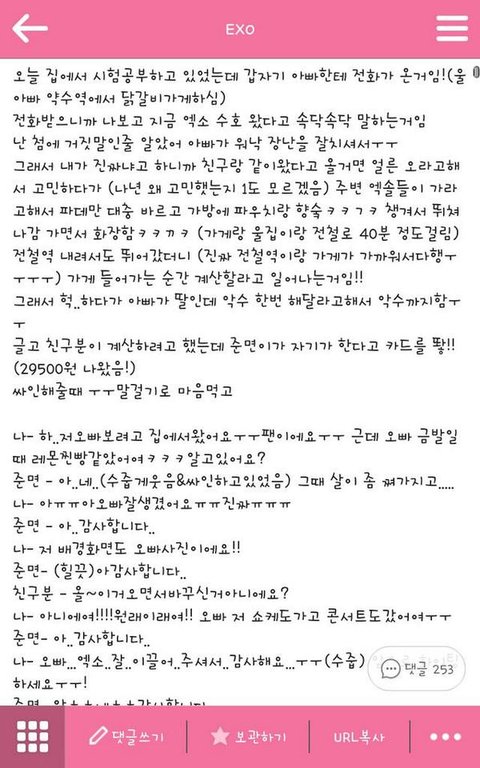 EXO
오늘 집에서 시험공부하고 있었는데 갑자기 아빠한테 전화가 온거임!(울
아빠 약수역에서 닭갈비가게하심)
전화받으니까 나보고 지금 엑소 수호 왔다고 속닥속닥 말하는거임
난 첨에 거짓말인줄 알았어 아빠가 워낙 장난을 잘치셔서ㅜㅜ
그래서 내가 진짜냐고 하니까 친구랑 같이왔다고 올거면 얼른 오라고해
서 고민하다가 (나년 왜 고민했는지 1도 모르겠음) 주변 엑솔들이 가라
고해서 파데만 대충 바르고 가방에 파우치랑 향숙ㅋㅋㄱㅋ 챙겨서 뛰쳐
나감 가면서 화장함ㅋㅋㄲㅋ (가게랑 울집이랑 전철로 40분 정도걸림)
전철역 내려서도 뛰어갔더니 (진짜 전철역이랑 가게가 가까워서다행ㅜ
ㅜㅜㅜㅜ) 가게 들어가는 순간 계산할라고 일어나는거임!!
그래서 헉..하다가 아빠가 딸인데 악수 한번 해달라고해서 악수까지함ㅜ
ㅜ
글고 친구분이 계산하려고 했는데 준면이가 자기가 한다고 카드를 똻!!
(29500원 나왔음!)
싸인해줄때 ㅜㅜ말걸기로 마음먹고
나- 하..저오빠보려고 집에서왔어요ㅜㅜ팬이에요ㅜㅜ 근데 오빠 금발일
때 레몬찐빵같았어여ㅋㅋㅋ알고있어요?
준면 - 아..네..(수줍게웃음&싸인하고있었음) 그때 살이 좀 쪄가지고.....
나- 아ㅠㅠ아오빠잘생겼어요ㅠㅠ진짜ㅠㅠㅠ
준면 - 아..감사합니다..
나- 저 배경화면도 오빠사진이에요!!
준면- (힐끗)아감사합니다..
친구분 - 올~이거오면서바꾸신거아니에요?
나- 아니에여!!!!원래이래여!! 오빠 저 쇼케도가고 콘서트도갔어여ㅜㅜ
준면- 아..감사합니다..
나- 오빠...엑소..잘..이끌어..주셔서..감사해요...ㅜㅜ(수줍)
하세요ㅜㅜ!
댓글 253
댓글쓰기
보관하기
URL복사